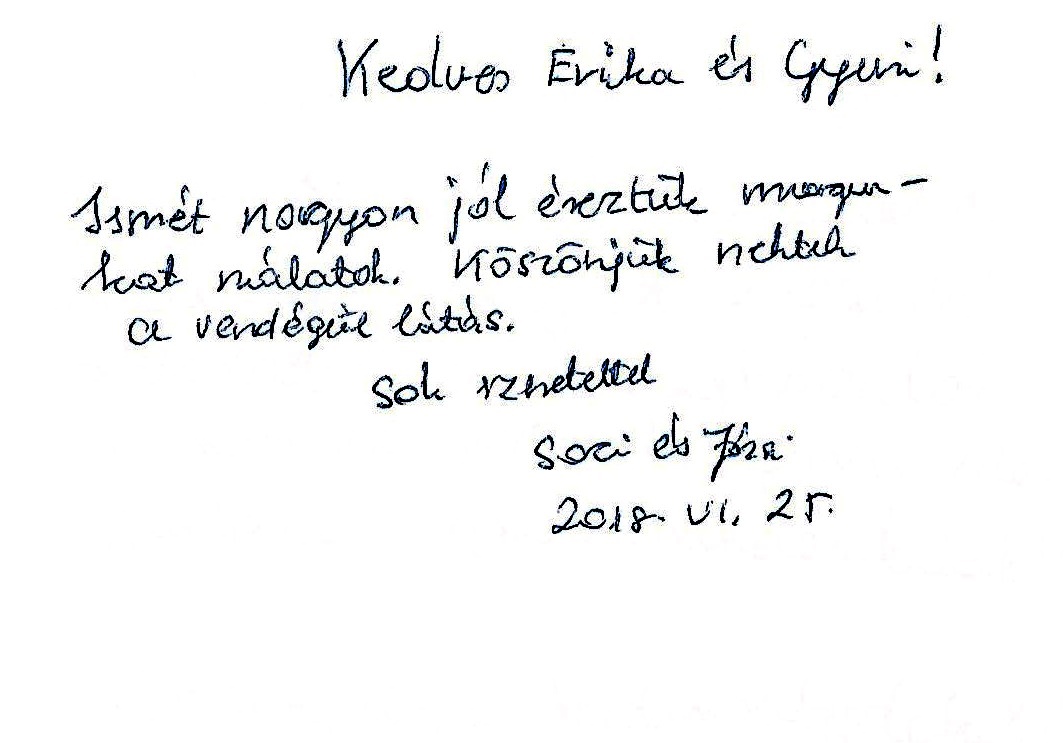 Kedves Erika és Gyuri!
Ismét nagyon jól éreztük magun-
kat nálatok. Köszönjük nektek
a vendégül látás.
Sok szeretettel
Soci és Józsi
2018. VI. 25.